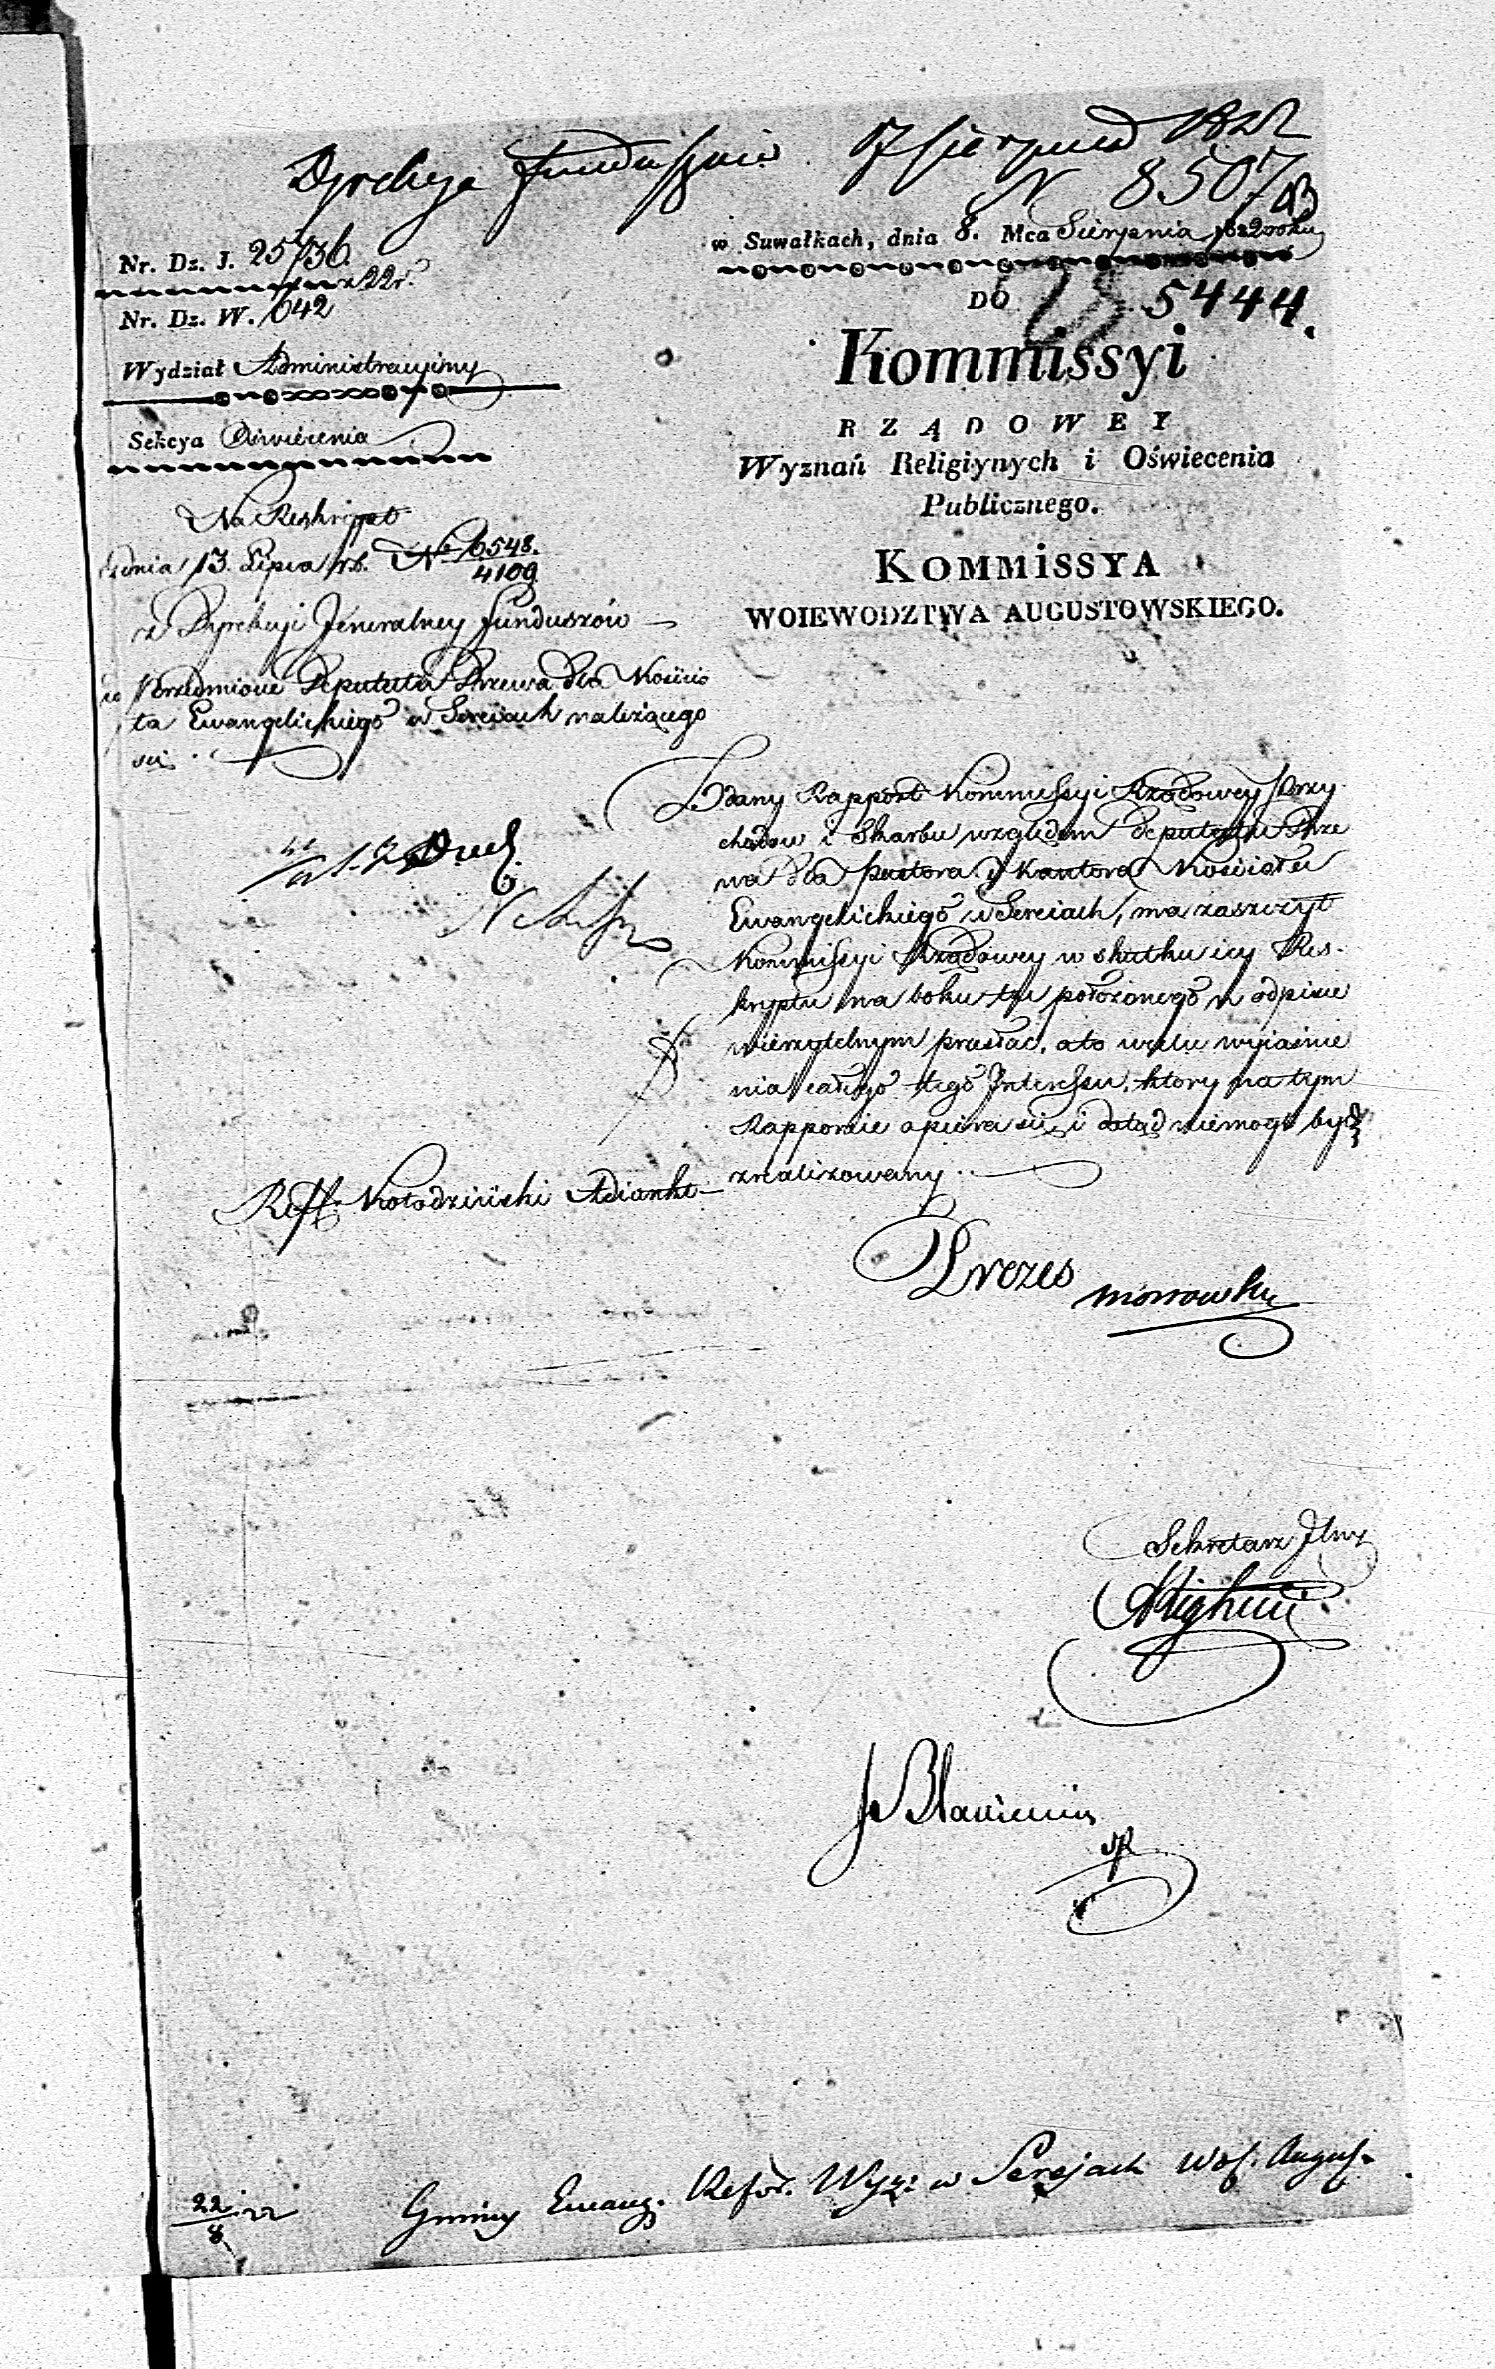 Dyrekcya Funduszów 17 Sierpnia 1822
N 8507
Nr. Dz. J. 25736
z 22r.
Nr. Dz. W. 642
Wydział Administracyiny
Sekcya Oświecenia
w Suwałkach, dnia 8. Mca Sierpnia 1822 roku
DO 5444.
Kommissyi
RZĄDOWEY
Wyznań Religiynych i Oświecenia
Publicznego.
KOMMISSYA
WOIEWODZTWA AUGUSTOWSKIEGO.
Na Reskrypt
z dnia 13. Lipca rb. No 6548.
4109
z Dyrekcyi Jeneralney Funduszów
w przedmiocie Deputatu Drzewa dla Kościo
ła Ewangelickiego w Sereiach należącego
się.
Zdany Rapport Kommissyi Rządowey Przy
chodów i Skarbu względem deputatu Drze
wa dla pastora i Kantora Kościoła
Ewangelickiego w Sereiach, ma zaszczyt
Kommissyi Rządowey w skutku iey Res-
kryptu na boku tu położonego w odpisie
wierzytelnym przesłać, a to w celu wyiaśnie
nia całego tego Interessu, który na tym
Rapporcie opiera się i dotąd niemógł bydź
zrealizowany.
Reff. Kołodziński Adiunkt
Prezes
Sekretarz Jlny
22/8 22
Gminy Ewang. Refor. Wyz: w Serejach Woj. August.